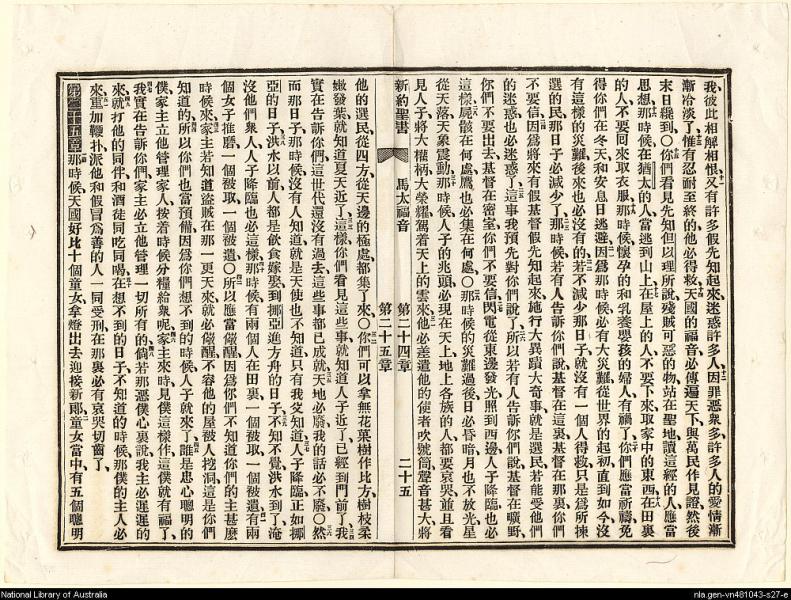 我、彼此相解相恨、又有許多假先知起來、迷惑許多人、因罪惡衆多、許多人的愛情漸
漸冷淡了、惟有忍耐至終的、他必得救、天國的福音、必傳遍天下、與萬民作見證、然後
末日纔到、○你們看見先知但以理所說殘賊可惡的物、站在聖地、讀這經的人、應當
思想、那時候在猶太的人、當逃到山上、在屋上的人、不要下來取家中的東西、在田裏
的人、不要回來取衣服、那時候懷孕的和乳養嬰孩的婦人有禍了、你們應當祈禱、免
得你們在冬天和安息日逃避、因爲那時候必有大災難、從世界的起初直到如今、沒
有這樣的災難、後來也必沒有的、若不減少那日子、就沒有一個人得救、只是爲所揀
選的民、那日子必減少了、那時候若有人告訴你們說、基督在這裏、基督在那裏、你們
不要信、因爲將來有假基督假先知起來、施行大異蹟大奇事、就是選民、若能受他們
的迷惑、也必迷惑了、這事我預先對你們說了、所以若有人告訴你們說、基督在曠野、
你們不要出去、基督在密室、你們不要信、閃電從東邊發光、照到西邊、人子降臨也必
這樣、屍骸在何處、鷹也必集在何處、○那時候的災難過後、日必昏暗、月也不放光、星
從天落、天象震動、那時候人子的兆頭、必現在天上、地上各族的人、都要哀哭、並且看
見人子、將大權柄大榮耀、駕着天上的雲來、他必差遣他的使者、吹號筒、聲音甚大、將
新約聖書 馬太福音 第二十四章 第二十五章 二十五
他的選民、從四方、從天邊的極處、都集了來、○你們可以拿無花菓樹作比方、樹枝柔
嫩發葉、就知道夏天近了、這樣你們看見這些事、就知道人子近了、已經到門前了、我
實在告訴你們、這世代還沒有過去、這些事都已成就、天地必廢、我的話必不廢、○然
而那日子那時候、沒有人知道、就是天使也不知道、只有我父知道、人子降臨、正如挪
亞的日子、洪水以前、人都是飲食嫁娶、到挪亞進方舟的日子、不知不覺洪水到了、淹
沒他們衆人、人子降臨也必這樣、那時候有兩個人在田裏、一個被取、一個被遺、有兩
個女子推磨、一個被取、一個被遺、○所以應當儆醒、因爲你們不知道你們的主甚麽
時候來、家主若知道盜賊在那一更天來、就必儆醒、不容他的屋被人挖洞、這是你們
知道的、所以你們也當預備、因爲你們想不到的時候、人子就來了、誰是忠心聰明的
僕、家主立他管理家人、按着時候分糧給衆呢、家主來時、見僕這樣作、這僕就有福了、
我實在告訴你們、家主必立他管理一切所有的、倘若那惡僕心裏說、我主必遲遲的
來、就打他的同伴、和酒徒同吃同喝、在想不到的日子、不知道的時候、那僕的主人必
來、重加鞭扑、派他和假冒爲善的人一同受刑、在那裏必有哀哭切齒了、
第二十五章 那時候天國好比十個童女、拿燈出去迎接新郎、童女當中、有五個聰明
National Library of Australia
nla.gen-vn481043-s27-e